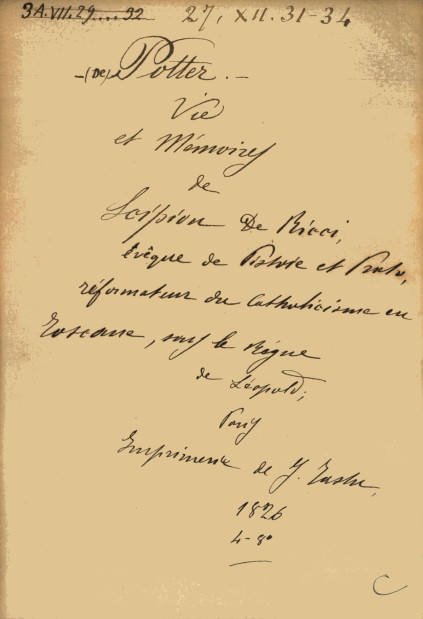 3A.VII.29....32 27, XII. 31-34
-(De) Potter.-
Vie
et Mémoires
de
Scipion De Ricci,
évêque de Pistoie et Prato,
réformateur du Catholicisme en
Toscane, sous le Règne
de Léopold;
Paris
Imprimerie de J. Tastu,
1826
4-8°
C